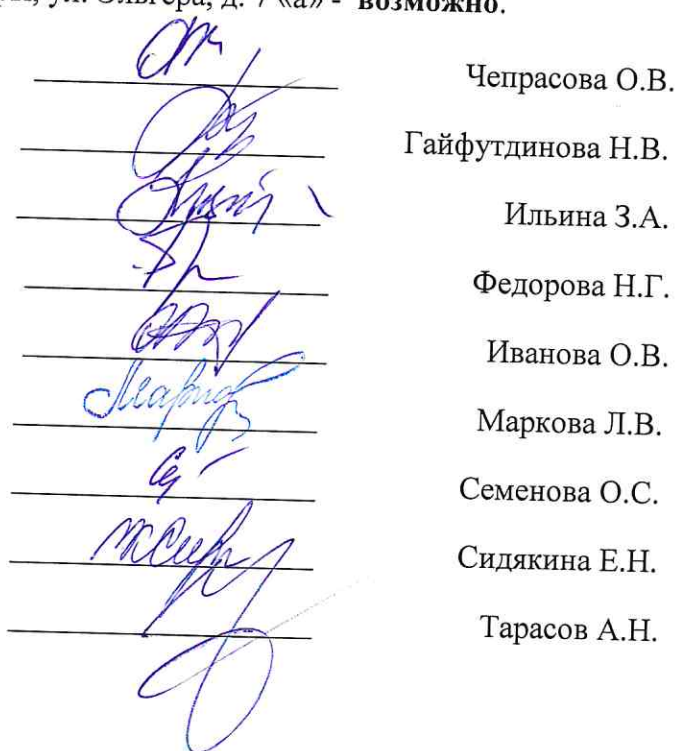 ул. Эльгера, д. 7 «а» - возможно.
Чепрасова О.В.
Гайфутдинова Н.В.
Ильина З.А.
Федорова Н.Г.
Иванова О.В.
Маркова Л.В.
Семенова О.С.
Сидякина Е.Н.
Тарасов А.Н.